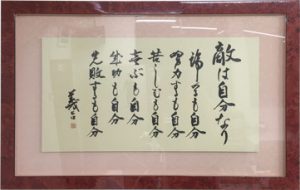 敵は自分なり
諦るも自分
努力するも自分
苦しむも自分
喜ぶも自分
成功も自分
失敗するも自分